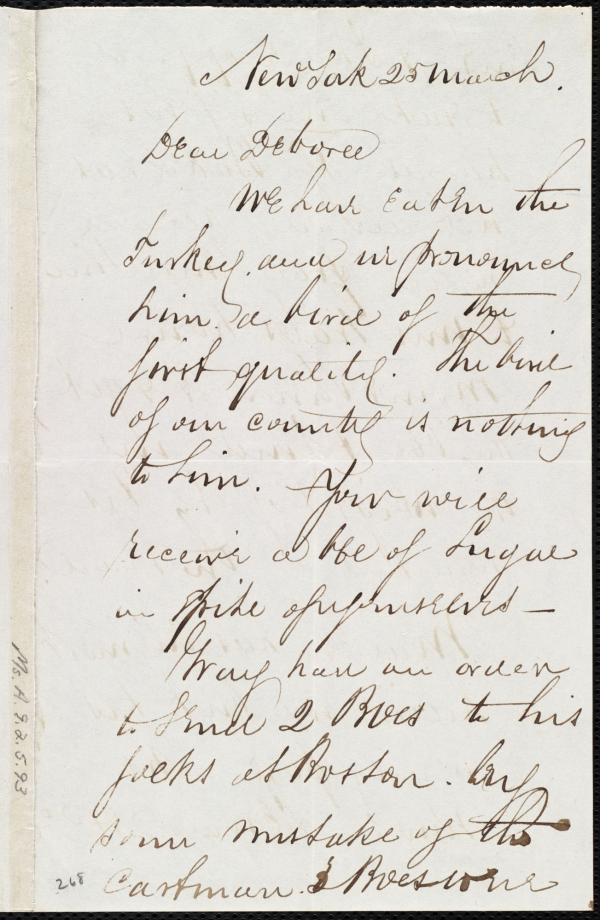 New York 25 March.
Dear Deborah
We have eaten the
Turkey, and we pronounce
him a bird of the
first quality. The bird
of our country is nothing
to him. You will
receive a bbl of Sugar
in spite of yourselves —
Gray had an order
to send 2 Bbls to his
folks at Boston. by
some mistake of the
Cartman. 3 Bbls were
268
Ms.A.9.2.5.93